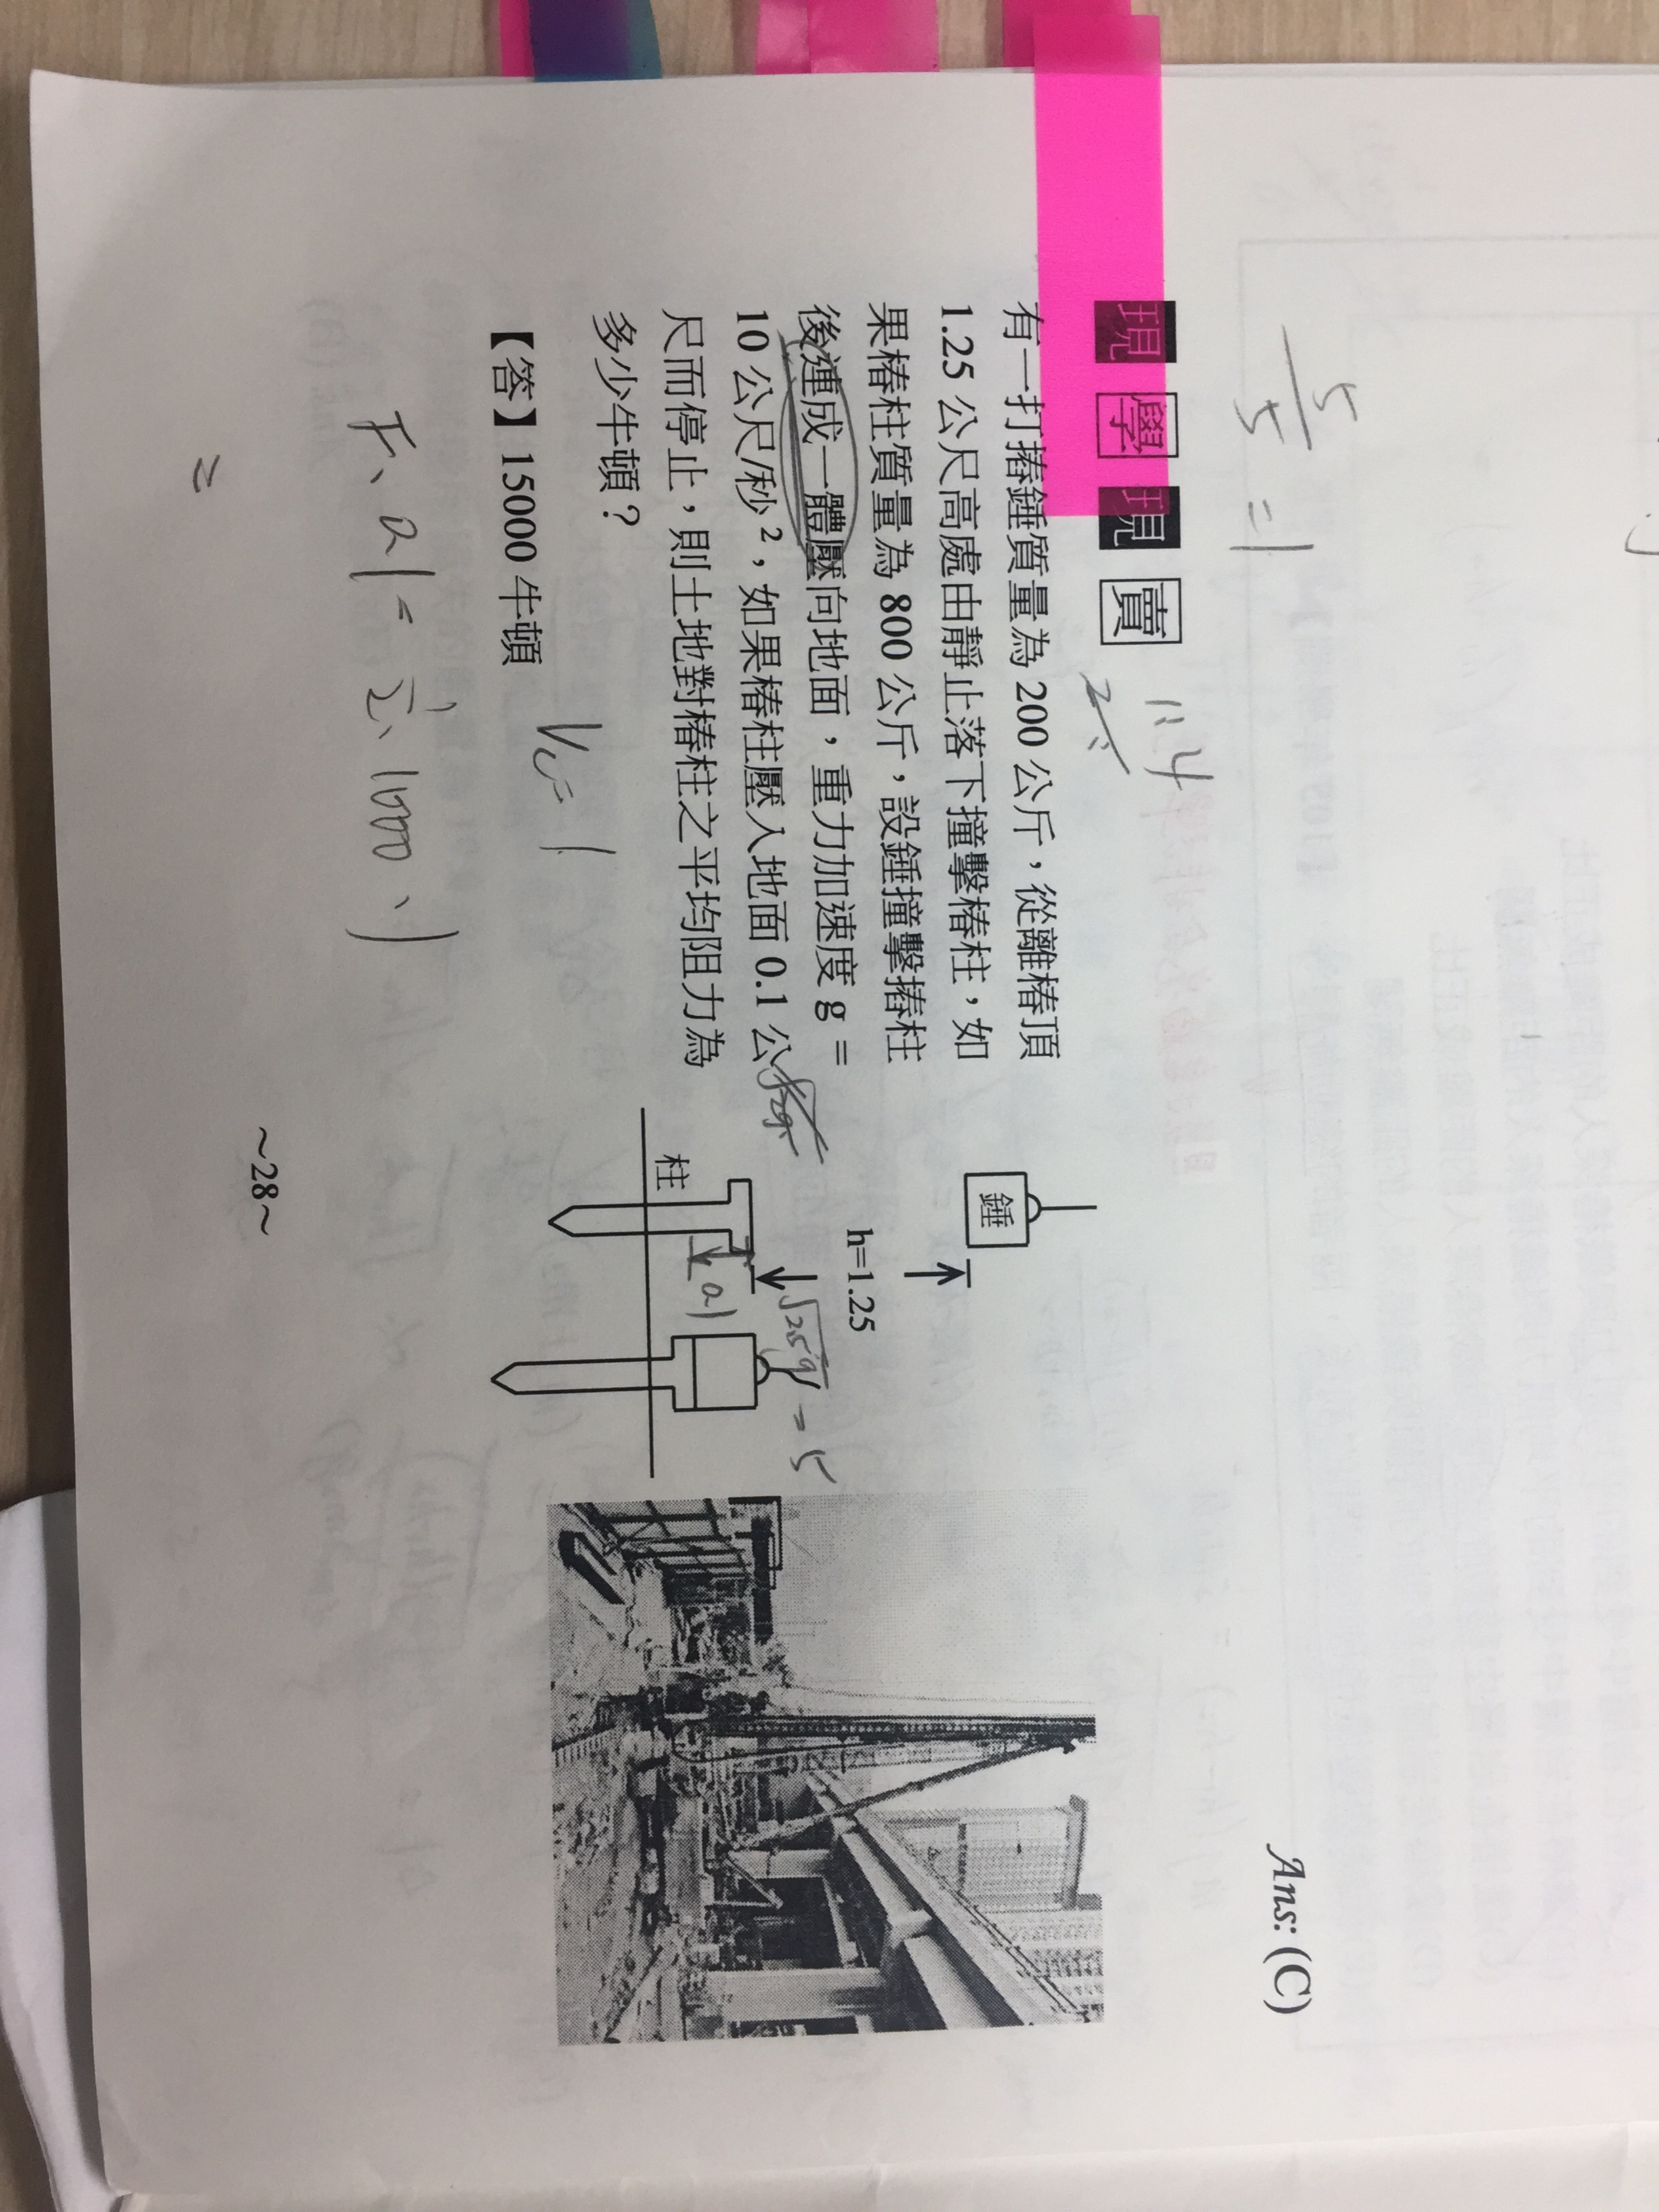 5/5 = 1
Ans: (C)
現學現賣
1:4
有一打摏錘質量為 200 公斤，從離樁頂
1.25 公尺高處由靜止落下撞擊樁柱，如
果樁柱質量為 800 公斤，設錘撞擊摏柱
後連成一體壓向地面，重力加速度 g =
10 公尺/秒²，如果樁柱壓入地面 0.1 公
尺而停止，則土地對樁柱之平均阻力為
多少牛頓？
【答】15000 牛頓
錘
h=1.25
√25g = 5
柱
01
Vc = 1
F、01 = ½、1000、1
=
~28~